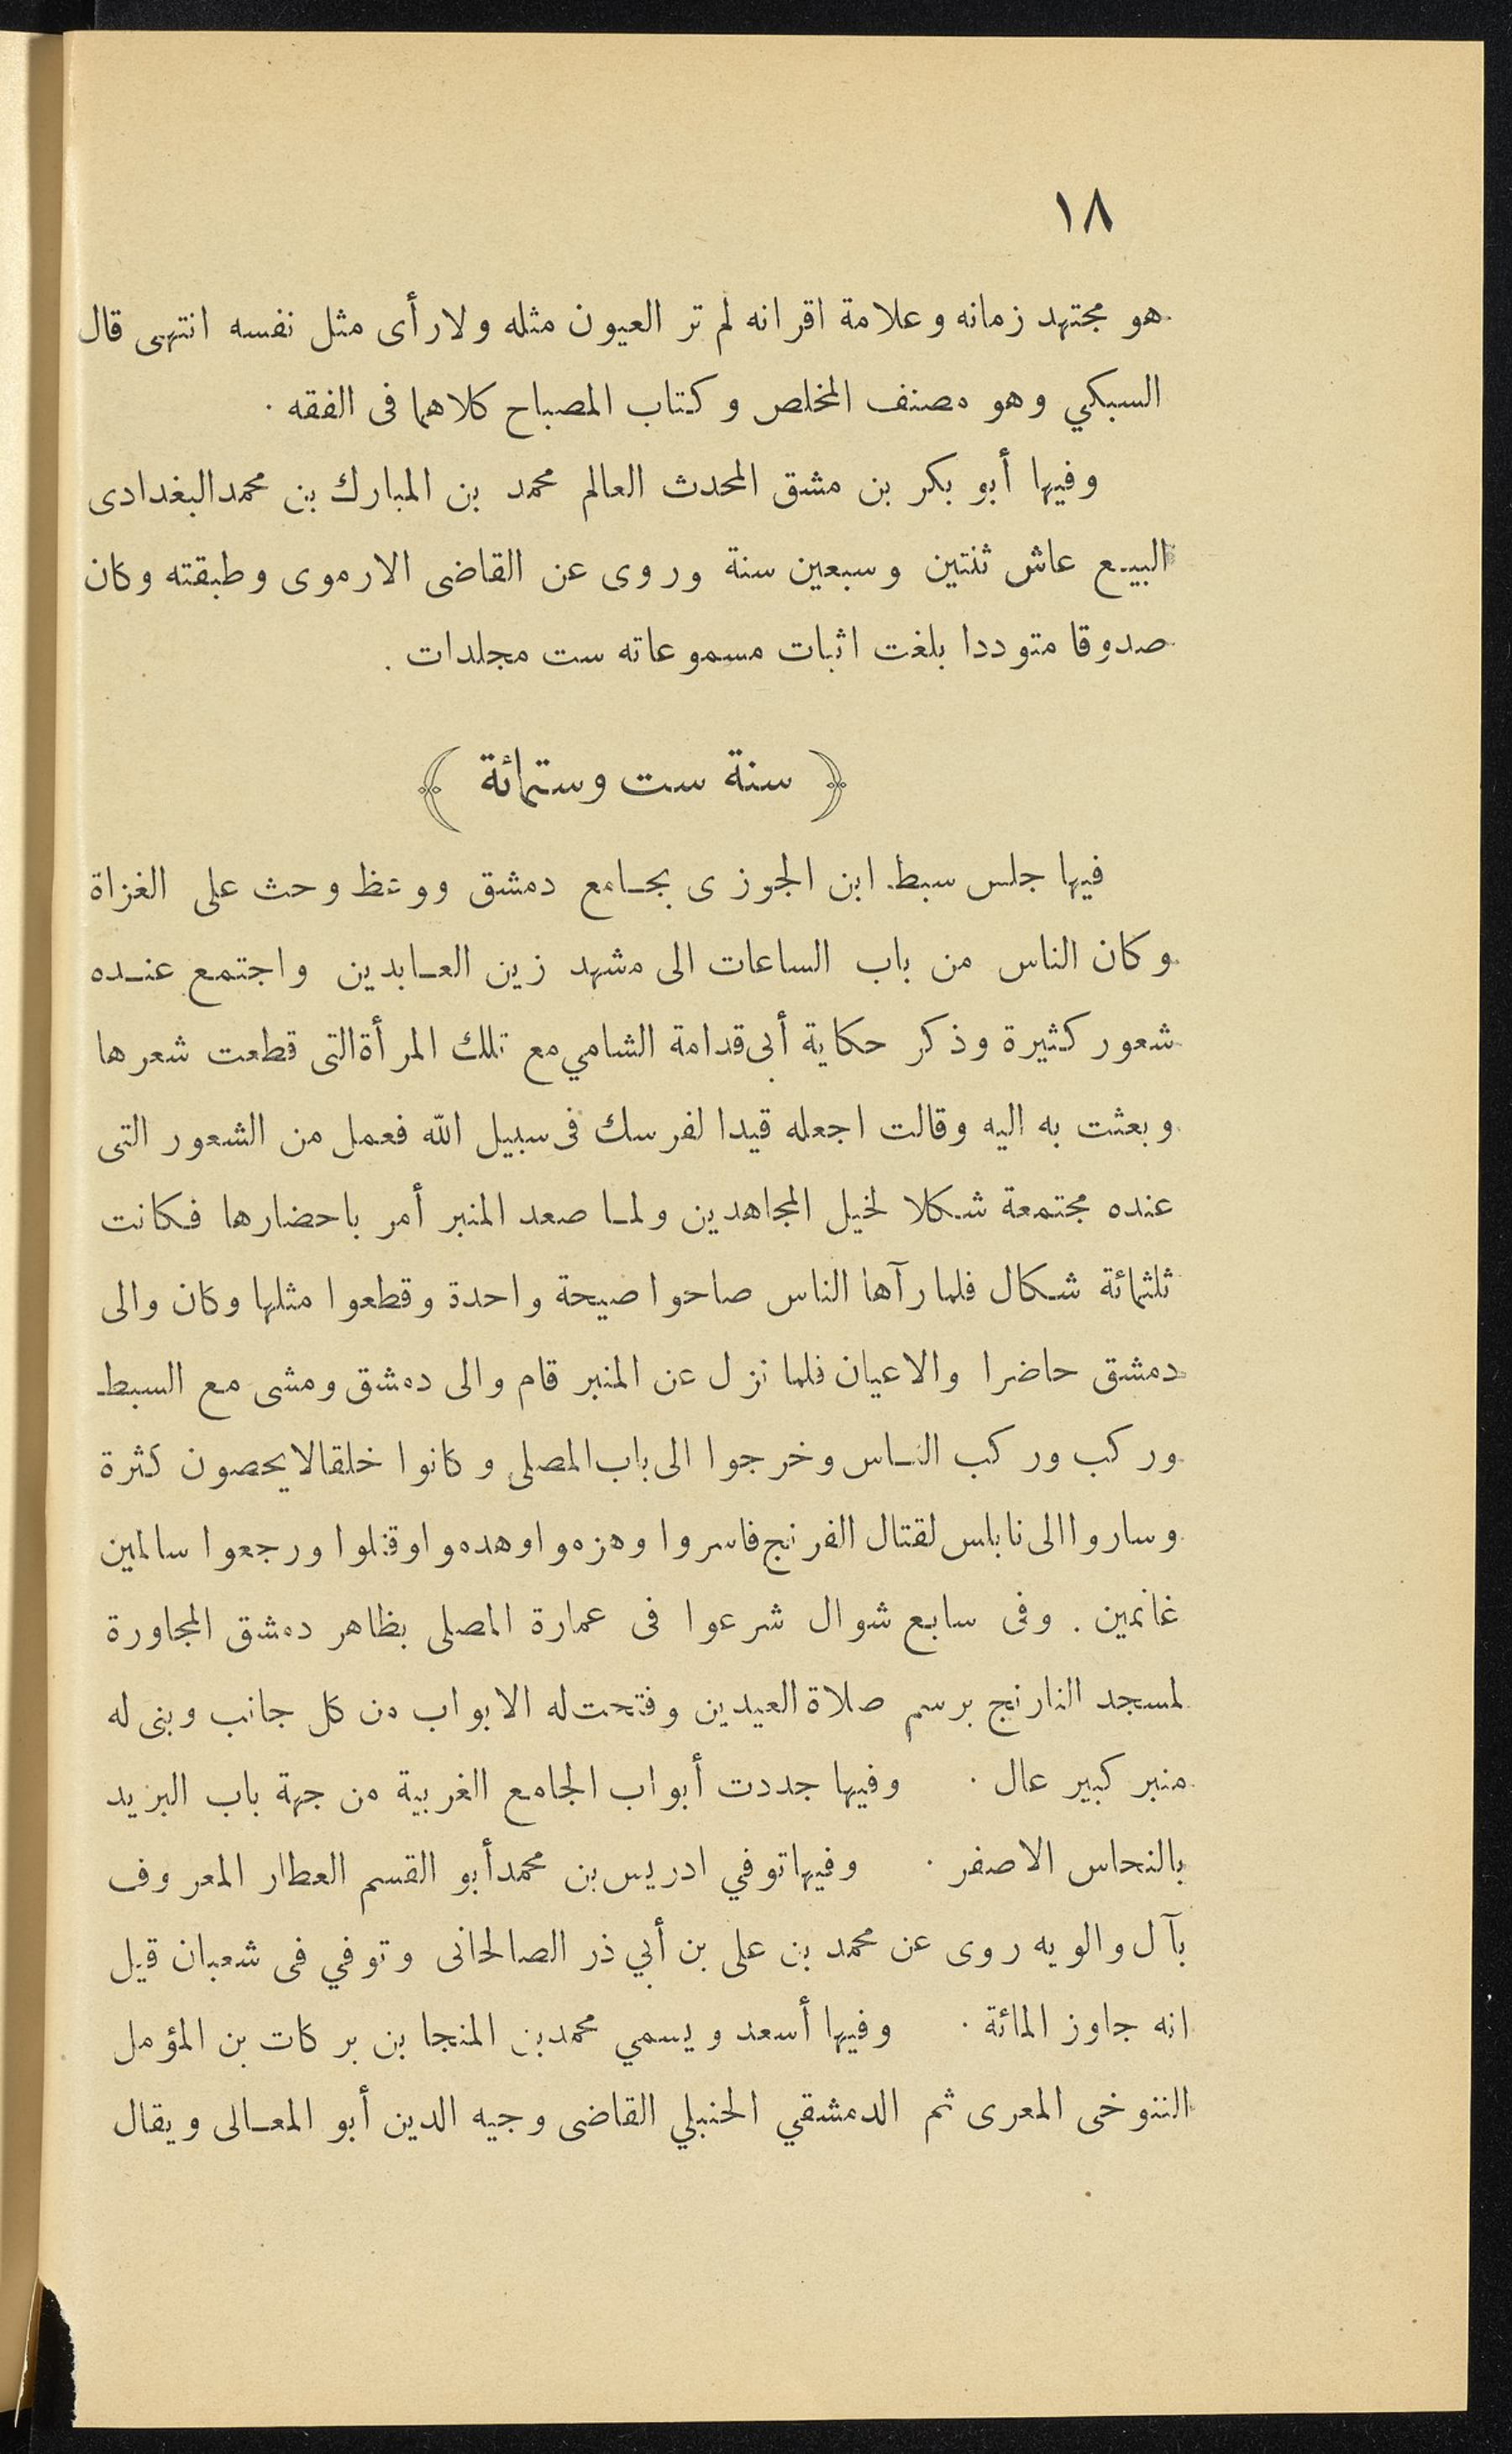 ١٨
هو مجتهد زمانه وعلامة اقرانه لم تر العيون مثله ولا رأى مثل نفسه انتهى قال
السبكي وهو مصنف المخلص وكتاب المصباح كلاهما فى الفقه .
وفيها أبو بكر بن مشق المحدث العالم محمد بن المبارك بن محمد البغدادى
البيع عاش ثنتين وسبعين سنة وروى عن القاضى الارموى وطبقته وكان
صدوقا متوددا بلغت اثبات مسموعاته ست مجلدات .
﴿ سنة ست وستمائة ﴾
فيها جلس سبط ابن الجوزى بجامع دمشق ووعظ وحث على الغزاة
وكان الناس من باب الساعات الى مشهد زين العابدين واجتمع عنده
شعور كثيرة وذكر حكاية أبى قدامة الشامي مع تلك المرأة التى قطعت شعرها
وبعثت به اليه وقالت اجعله قيدا لفرسك فى سبيل الله فعمل من الشعور التى
عنده مجتمعة شكلا لخيل المجاهدين ولما صعد المنبر أمر باحضارها فكانت
ثلثمائة شكال فلما رآها الناس صاحوا صيحة واحدة وقطعوا مثلها وكان والى
دمشق حاضرا والاعيان فلما نزل عن المنبر قام والى دمشق ومشى مع السبط
وركب وركب الناس وخرجوا الى باب المصلى وكانوا خلقا لا يحصون كثرة
وساروا الى نابلس لقتال الفرنج فاسروا وهزموا وهدموا وقتلوا ورجعوا سالمين
غانمين . وفى سابع شوال شرعوا فى عمارة المصلى بظاهر دمشق المجاورة
لمسجد النارنج برسم صلاة العيدين وفتحت له الابواب من كل جانب وبنى له
منبر كبير عال . وفيها جددت أبواب الجامع الغربية من جهة باب البريد
بالنحاس الاصفر . وفيها توفي ادريس بن محمد أبو القسم العطار المعروف
بآل والويه روى عن محمد بن على بن أبي ذر الصالحانى وتوفي فى شعبان قيل
انه جاوز المائة . وفيها أسعد ويسمي محمد بن المنجا بن بركات بن المؤمل
التنوخى المعرى ثم الدمشقي الحنبلي القاضى وجيه الدين أبو المعالى ويقال